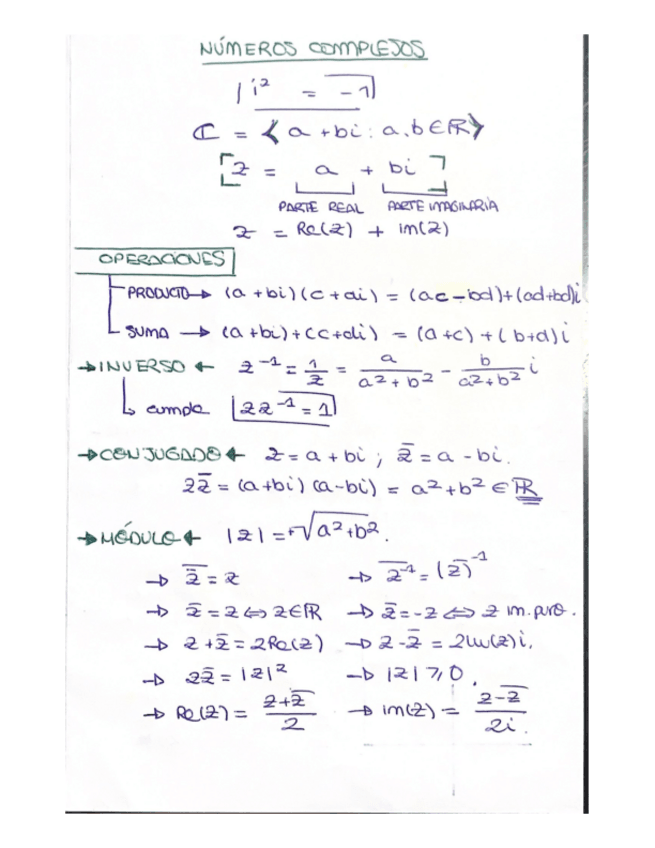 NÚMEROS COMPLEJOS
i² = -1
ℂ = {a + bi : a, b ∈ ℝ}
[z = a + bi]
PARTE REAL PARTE IMAGINARIA
z = Re(z) + im(z)
OPERACIONES
PRODUCTO → (a + bi)(c + di) = (ac - bd) + (ad + bd)i
SUMA → (a + bi) + (c + di) = (a + c) + (b + d)i
→ INVERSO ← z⁻¹ = 1/z = a/(a² + b²) - b/(a² + b²) i
↳ cumple zz⁻¹ = 1
→ CONJUGADO ← z = a + bi ; z̅ = a - bi.
zz̅ = (a + bi)(a - bi) = a² + b² ∈ ℝ
→ MÓDULO ← |z| = +√(a² + b²).
→ z̿ = z → \overline{z⁻¹} = (z̅)⁻¹
→ z̅ = z ⇔ z ∈ ℝ → z̅ = -z ⇔ z im. puro.
→ z + z̅ = 2Re(z) → z - z̅ = 2Im(z)i.
→ zz̅ = |z|² → |z| ≥ 0.
→ Re(z) = (z + z̅)/2 → im(z) = (z - z̅)/2i.